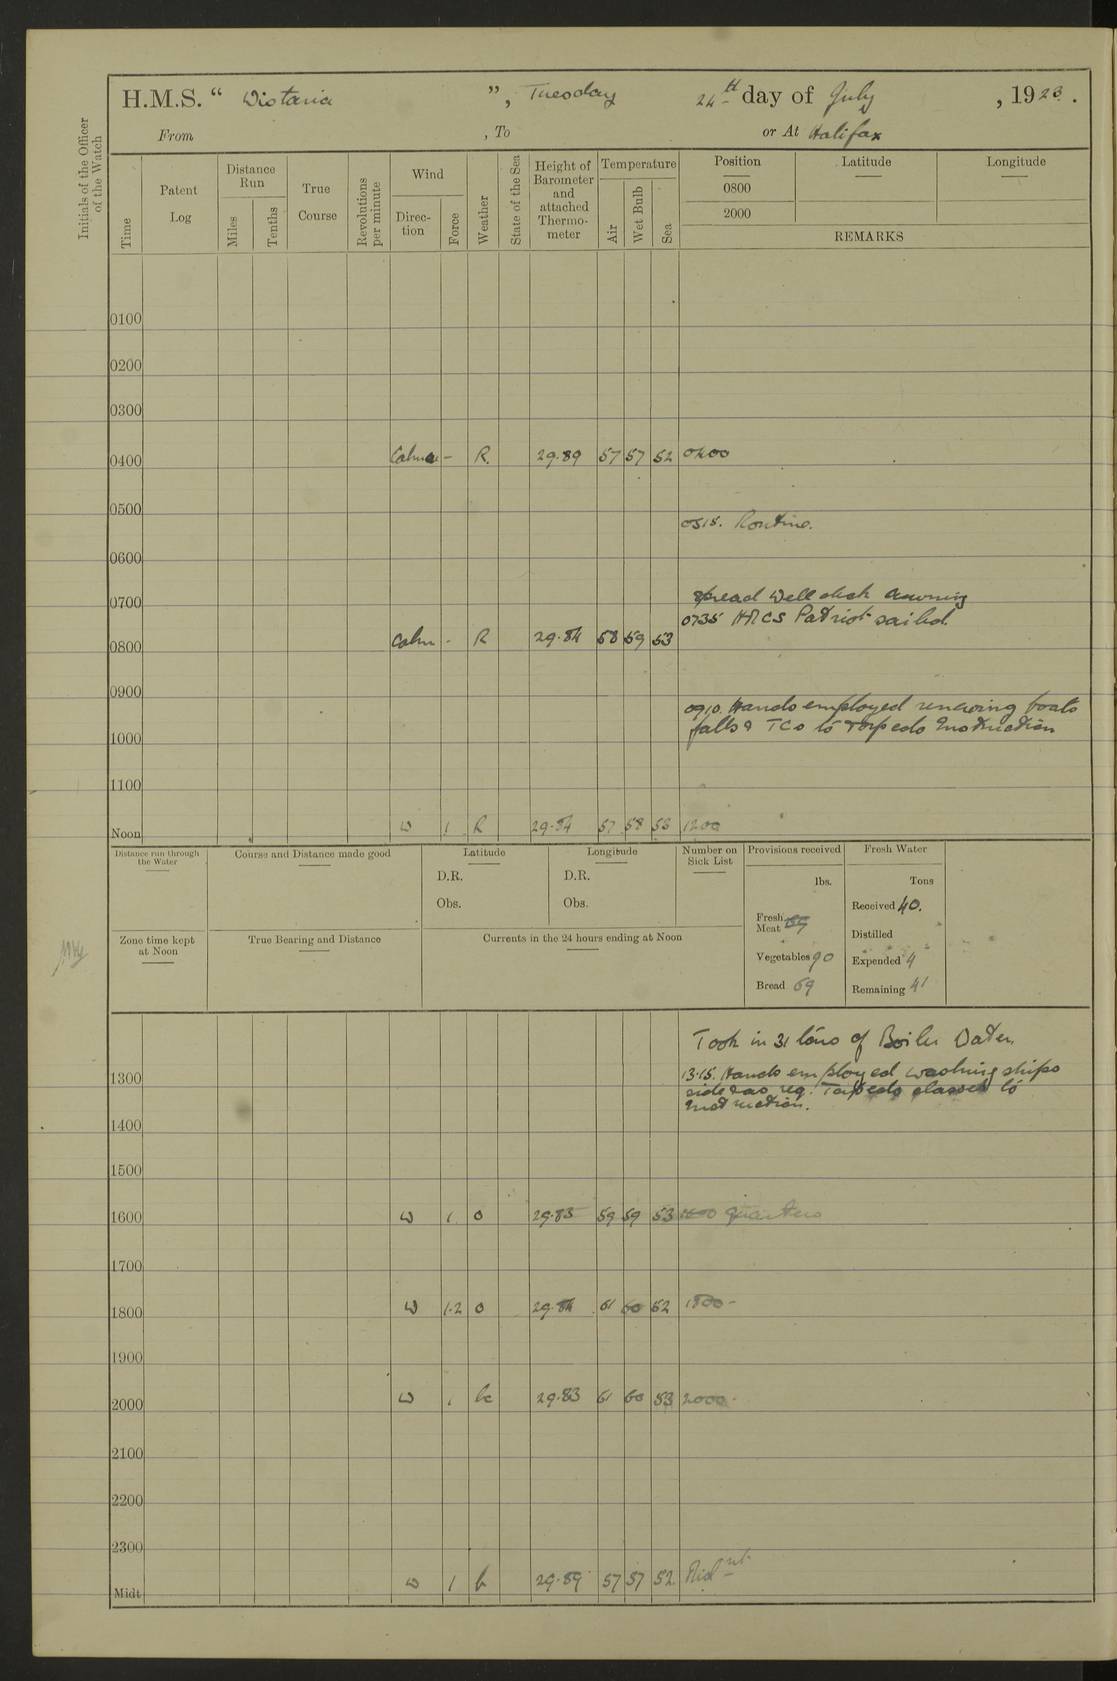 H.M.S. “ Wistaria ”, Tuesday 24th day of July, 1923.
From , To or At Halifax
Initials of the Officer of the Watch
Time
Patent Log
Distance Run
Miles
Tenths
True Course
Revolutions per minute
Wind
Direc-tion
Force
Weather
State of the Sea
Height of Barometer and attached Thermo-meter
Temperature
Air
Wet Bulb
Sea
Position Latitude Longitude
0800
2000
REMARKS
0100
0200
0300
0400 Calm - R. 29.89 57 57 52 0400
0500
0515. Routine.
0600
Spread Well deck awning
0700
0735 HMCS Patriot sailed.
0800 Calm - R 29.84 58 59 53
0900
0910. Hands employed renewing boats
falls & TCs to Torpedo Instruction
1000
1100
Noon W 1 R 29.84 57 58 53 1200
Distance run through the Water
Course and Distance made good
Latitude
D.R.
Obs.
Longitude
D.R.
Obs.
Number on Sick List
Provisions received
lbs.
Fresh Meat 69
Vegetables 90
Bread 69
Fresh Water
Tons
Received 40.
Distilled
Expended 4
Remaining 41
Zone time kept at Noon
True Bearing and Distance
Currents in the 24 hours ending at Noon
Took in 31 tons of Boiler Water.
1300
1315. Hands employed washing ships
side & as req. Torpedo classes to
Instruction.
1400
1500
1600 W 1 O 29.83 59 59 53 1600 Quarters
1700
1800 W 1.2 O 29.84 61 60 52 1800 -
1900
2000 W 1 bc 29.83 61 60 53 2000 -
2100
2200
2300
Midt W 1 b 29.89 57 57 52 Midnt